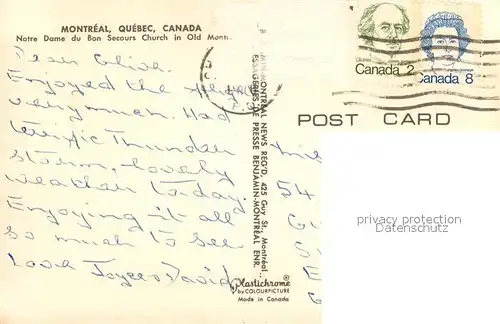 MONTRÉAL, QUÉBEC, CANADA
Notre Dame du Bon Secours Church in Old Montr
Dear Olive,
Enjoyed the
very much. Had
terrific Thunder
storm, lovely
weather today.
Enjoying it all
so much to see
Love Joyce & David
BENJAMIN-MONTREAL NEWS REG'D, 425 Guy St., Montréal.
MESSAGERIES DE PRESSE BENJAMIN-MONTRÉAL ENR.
Plastichrome®
by COLOURPICTURE
Made in Canada
Canada 2
Canada 8
POST CARD
54
privacy protection
Datenschutz